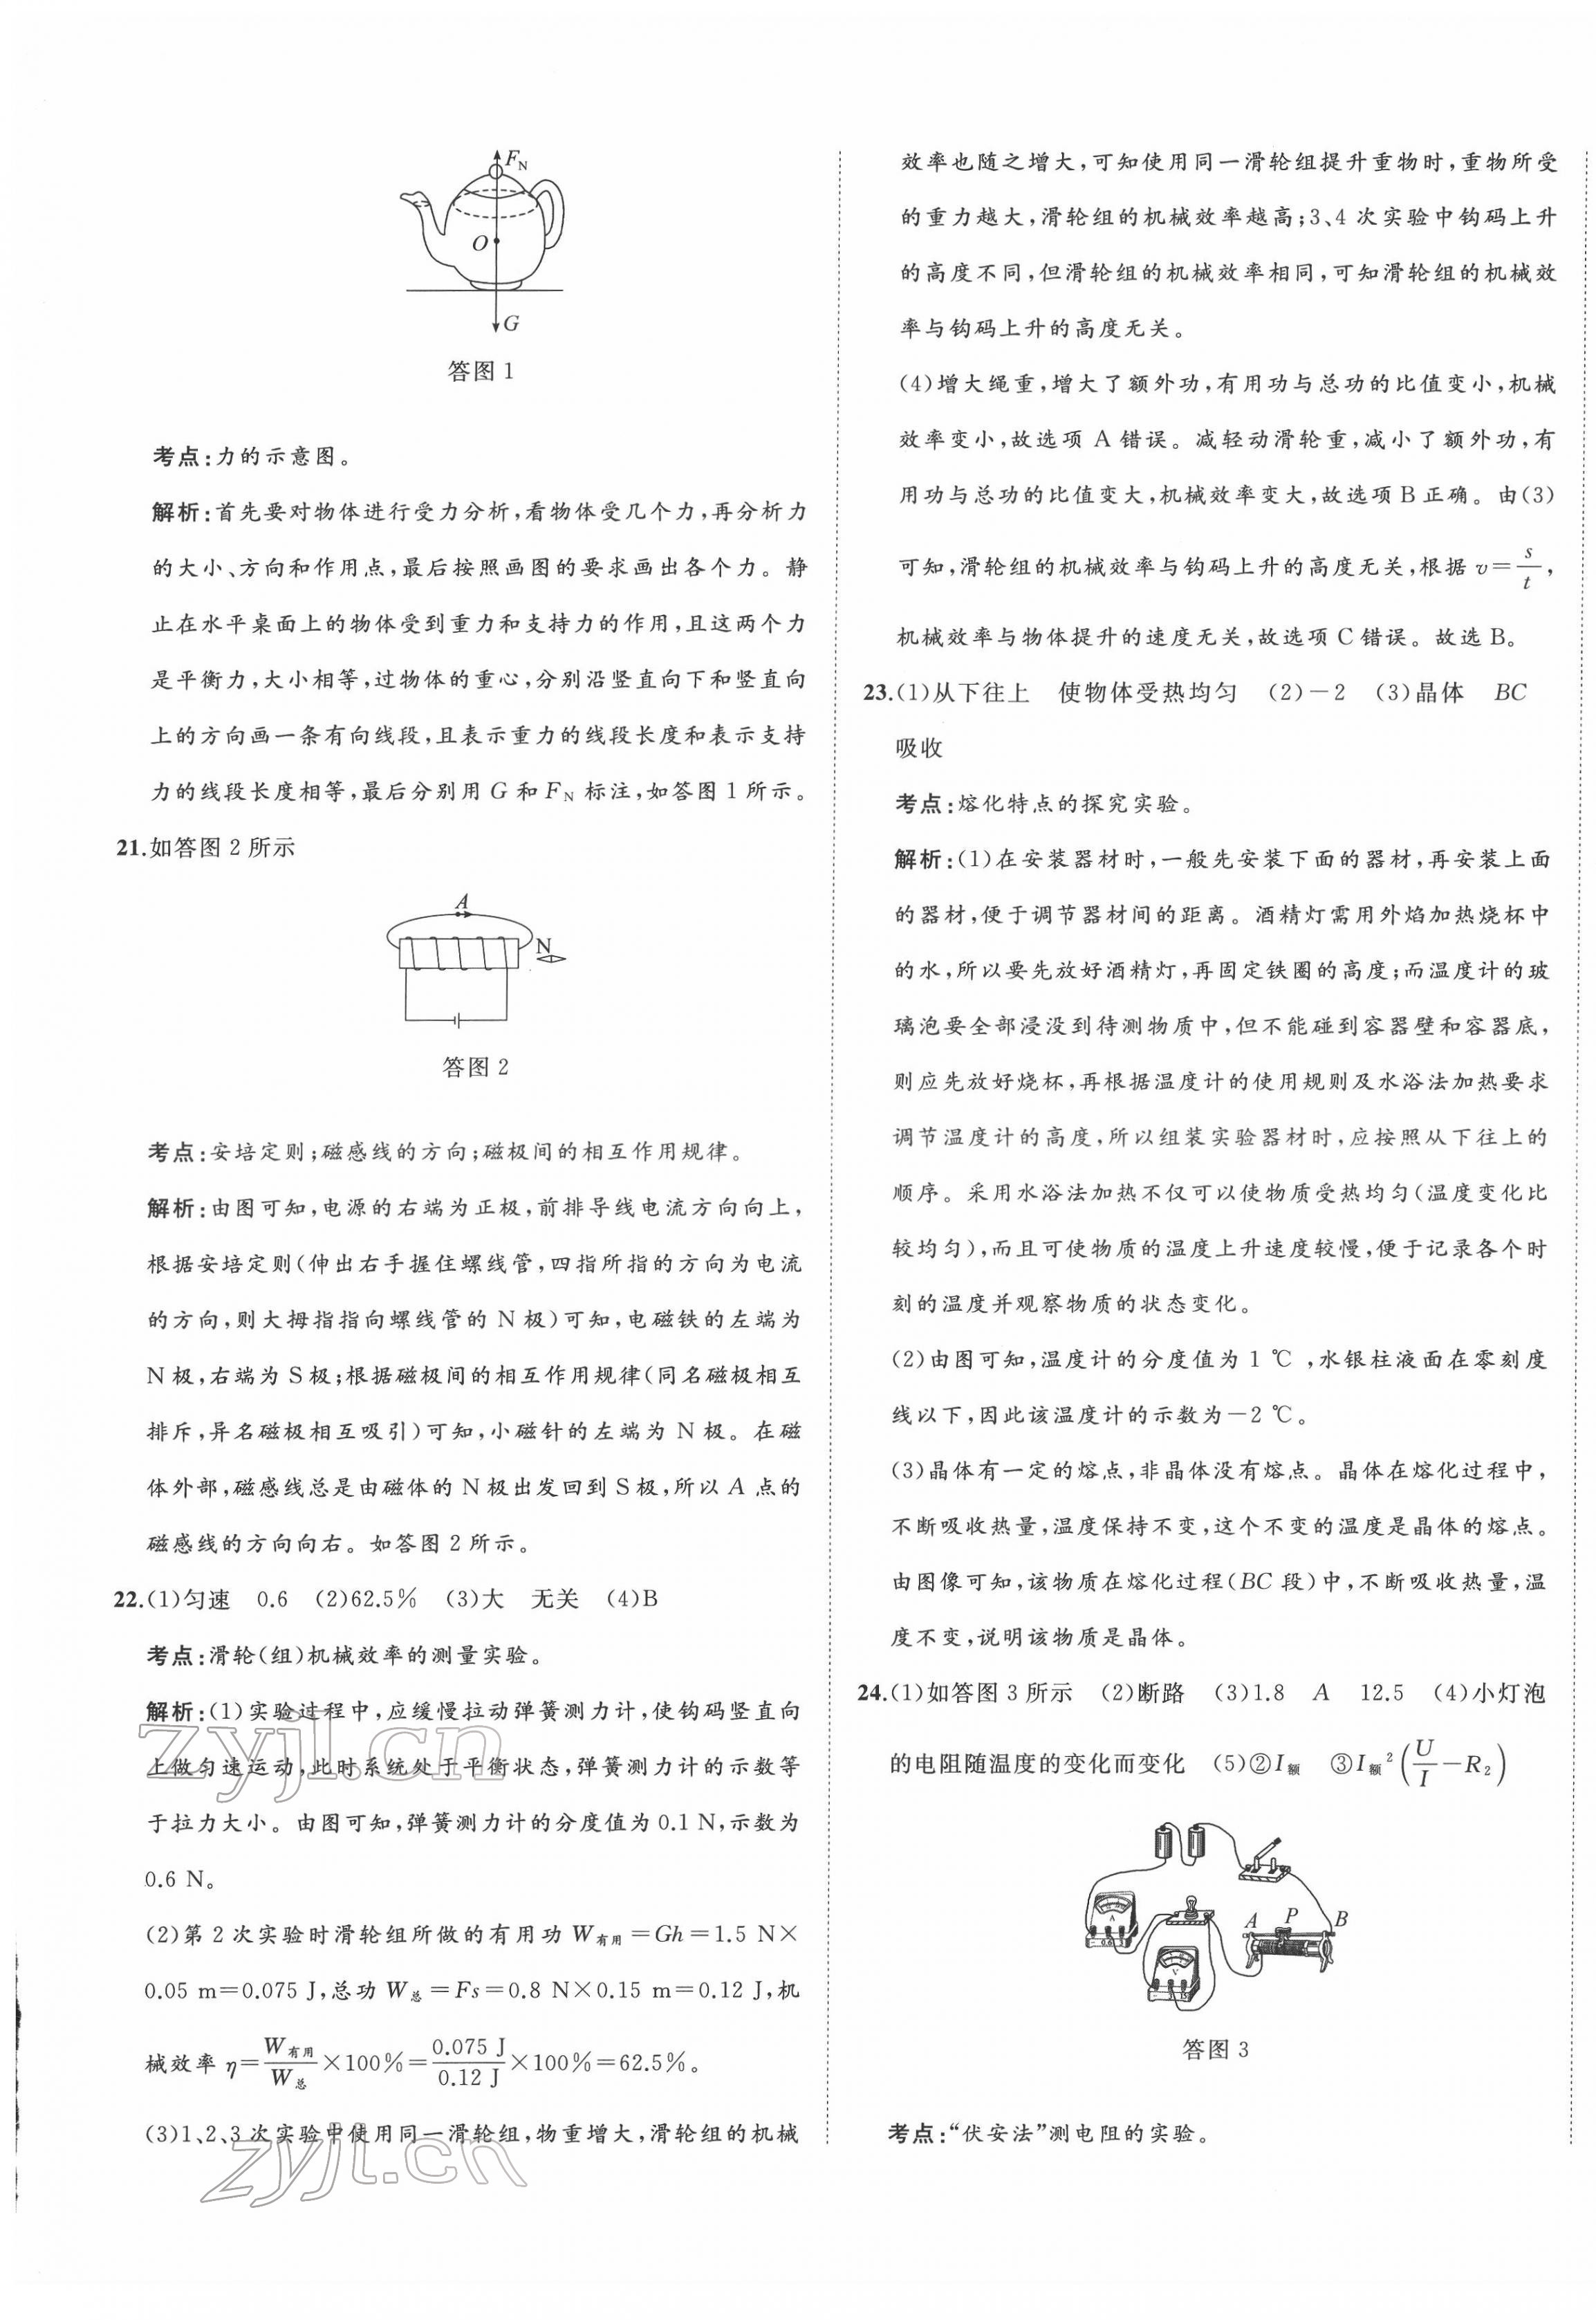 F_N
O
G
答图 1
考点:力的示意图。
解析:首先要对物体进行受力分析,看物体受几个力,再分析力
的大小、方向和作用点,最后按照画图的要求画出各个力。静
止在水平桌面上的物体受到重力和支持力的作用,且这两个力
是平衡力,大小相等,过物体的重心,分别沿竖直向下和竖直向
上的方向画一条有向线段,且表示重力的线段长度和表示支持
力的线段长度相等,最后分别用 G 和 F_N 标注,如答图 1 所示。
21.如答图 2 所示
A
N
答图 2
考点:安培定则;磁感线的方向;磁极间的相互作用规律。
解析:由图可知,电源的右端为正极,前排导线电流方向向上,
根据安培定则(伸出右手握住螺线管,四指所指的方向为电流
的方向,则大拇指指向螺线管的 N 极)可知,电磁铁的左端为
N 极,右端为 S 极;根据磁极间的相互作用规律(同名磁极相互
排斥,异名磁极相互吸引)可知,小磁针的左端为 N 极。在磁
体外部,磁感线总是由磁体的 N 极出发回到 S 极,所以 A 点的
磁感线的方向向右。如答图 2 所示。
22.(1)匀速 0.6 (2)62.5% (3)大 无关 (4)B
考点:滑轮(组)机械效率的测量实验。
解析:(1)实验过程中,应缓慢拉动弹簧测力计,使钩码竖直向
上做匀速运动,此时系统处于平衡状态,弹簧测力计的示数等
于拉力大小。由图可知,弹簧测力计的分度值为 0.1 N,示数为
0.6 N。
(2)第 2 次实验时滑轮组所做的有用功 W有用=Gh=1.5 N×
0.05 m=0.075 J,总功 W总=Fs=0.8 N×0.15 m=0.12 J,机
械效率 η=W有用/W总×100%=0.075 J/0.12 J×100%=62.5%。
(3)1、2、3 次实验中使用同一滑轮组,物重增大,滑轮组的机械
zyjl.cn
zyjl.cn
效率也随之增大,可知使用同一滑轮组提升重物时,重物所受
的重力越大,滑轮组的机械效率越高;3、4 次实验中钩码上升
的高度不同,但滑轮组的机械效率相同,可知滑轮组的机械效
率与钩码上升的高度无关。
(4)增大绳重,增大了额外功,有用功与总功的比值变小,机械
效率变小,故选项 A 错误。减轻动滑轮重,减小了额外功,有
用功与总功的比值变大,机械效率变大,故选项 B 正确。由(3)
可知,滑轮组的机械效率与钩码上升的高度无关,根据 v=s/t,
机械效率与物体提升的速度无关,故选项 C 错误。故选 B。
23.(1)从下往上 使物体受热均匀 (2)-2 (3)晶体 BC
吸收
考点:熔化特点的探究实验。
解析:(1)在安装器材时,一般先安装下面的器材,再安装上面
的器材,便于调节器材间的距离。酒精灯需用外焰加热烧杯中
的水,所以要先放好酒精灯,再固定铁圈的高度;而温度计的玻
璃泡要全部浸没到待测物质中,但不能碰到容器壁和容器底,
则应先放好烧杯,再根据温度计的使用规则及水浴法加热要求
调节温度计的高度,所以组装实验器材时,应按照从下往上的
顺序。采用水浴法加热不仅可以使物质受热均匀(温度变化比
较均匀),而且可使物质的温度上升速度较慢,便于记录各个时
刻的温度并观察物质的状态变化。
(2)由图可知,温度计的分度值为 1 ℃,水银柱液面在零刻度
线以下,因此该温度计的示数为-2 ℃。
(3)晶体有一定的熔点,非晶体没有熔点。晶体在熔化过程中,
不断吸收热量,温度保持不变,这个不变的温度是晶体的熔点。
由图像可知,该物质在熔化过程(BC 段)中,不断吸收热量,温
度不变,说明该物质是晶体。
24.(1)如答图 3 所示 (2)断路 (3)1.8 A 12.5 (4)小灯泡
的电阻随温度的变化而变化 (5)②I额 ③I额²(U/I-R₂)
A P B
A
V
答图 3
考点:“伏安法”测电阻的实验。